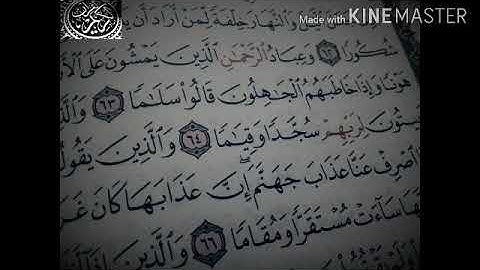 Made with KINEMASTER
وَالنَّهَارَ خِلْفَةً لِّمَنْ أَرَادَ أَن
شُكُورًا ٦٢ وَعِبَادُ ٱلرَّحْمَٰنِ ٱلَّذِينَ يَمْشُونَ عَلَى ٱلْأَرْ
هَوْنًا وَإِذَا خَاطَبَهُمُ ٱلْجَٰهِلُونَ قَالُوا۟ سَلَٰمًا ٦٣ وَٱلَّذِ
يتُونَ لِرَبِّهِمْ سُجَّدًا وَقِيَٰمًا ٦٤ وَٱلَّذِينَ يَقُولُ
ٱصْرِفْ عَنَّا عَذَابَ جَهَنَّمَ إِنَّ عَذَابَهَا كَانَ غَرَ
هَا سَآءَتْ مُسْتَقَرًّا وَمُقَامًا ٦٦ وَٱلَّذِينَ إِذَآ